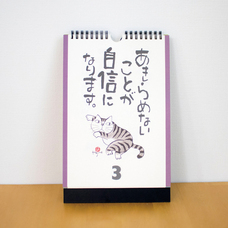 あきらめない
ことが
自信に
なります。
3